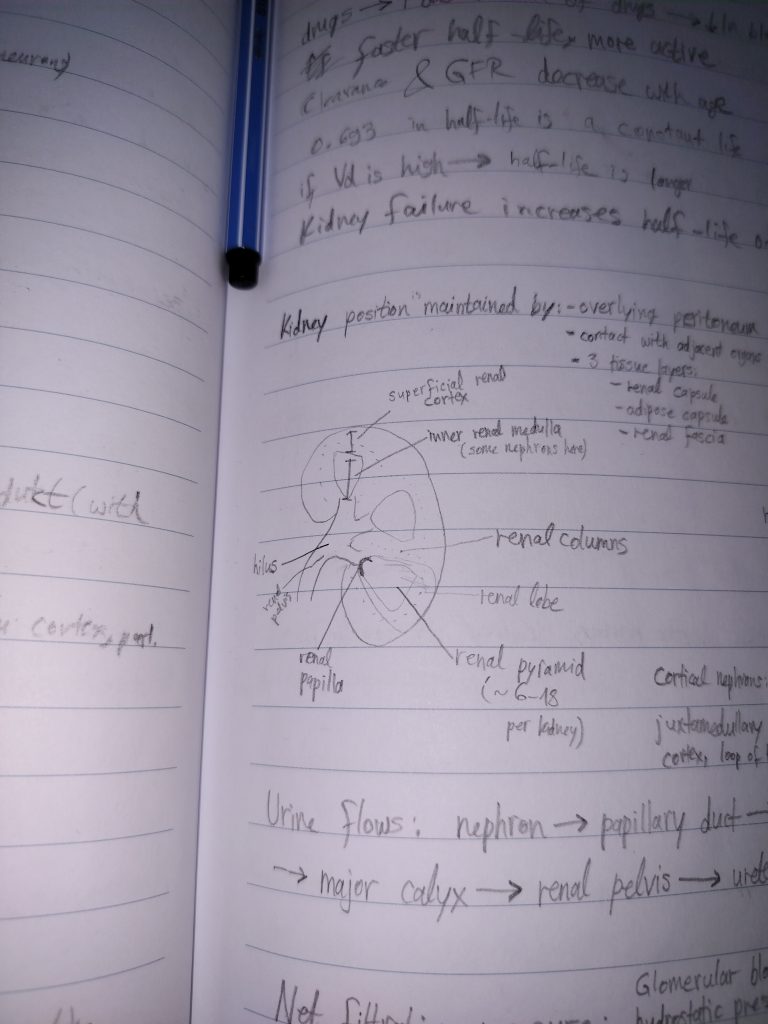 neurany
dukt (with
cortex, part.
drugs → of drugs →
faster half-life, more active
Clearance & GFR decrease with age
0.693 in half-life is a constant life
if Vd is high → half-life is longer
Kidney failure increases half-life
Kidney position maintained by: - overlying peritoneum
- contact with adjacent organs
- 3 tissue layers:
- renal capsule
- adipose capsule
- renal fascia
superficial renal
cortex
inner renal medulla
(some nephrons here)
renal columns
hilus
renal
pelvis
renal lobe
renal
papilla
renal pyramid
(~6-18
per kidney)
Cortical nephrons:
juxtamedullary
cortex, loop of
Urine flows: nephron → papillary duct →
→ major calyx → renal pelvis →
Glomerular
hydrostatic
Net